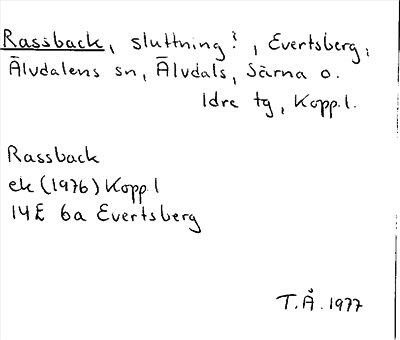 Rassback, sluttning?, Evertsberg,
Älvdalens sn, Älvdals, Särna o.
Idre tg, Kopp.l.
Rassback
ek (1976) Kopp l
14E 6a Evertsberg
T.Å. 1977